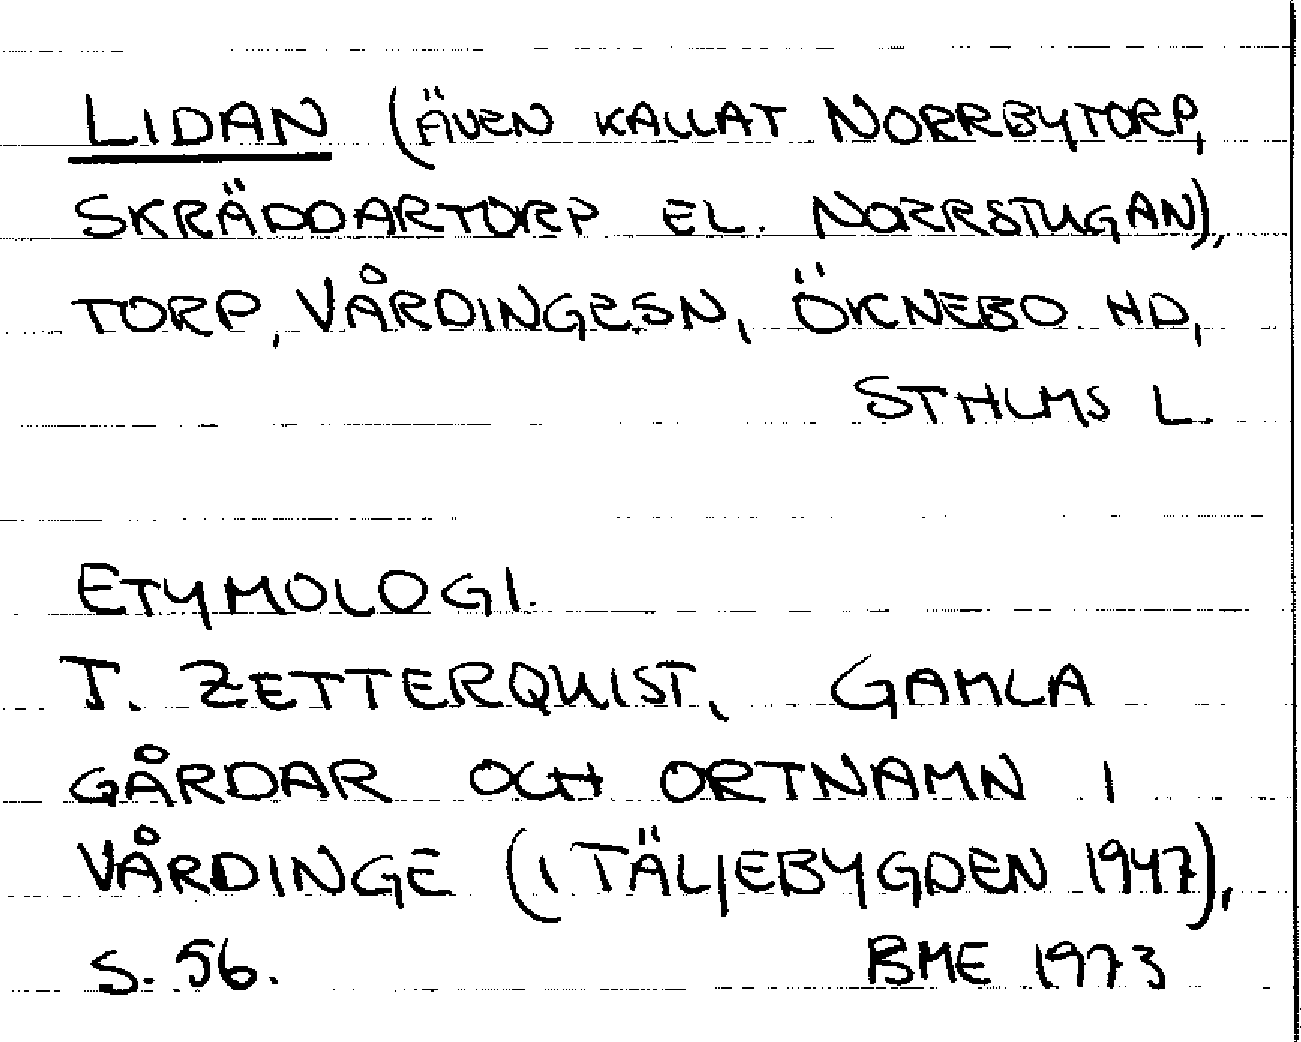 LIDAN (ÄVEN KALLAT NORRBYTORP,
SKRÄDDARTORP EL. NORRSTUGAN),
TORP, VÅRDINGE SN, ÖKNEBO HD,
STHLMS L.
ETYMOLOGI.
T. ZETTERQUIST, GAMLA
GÅRDAR OCH ORTNAMN I
VÅRDINGE (I TÄLJEBYGDEN 1947),
S. 56. BME 1973